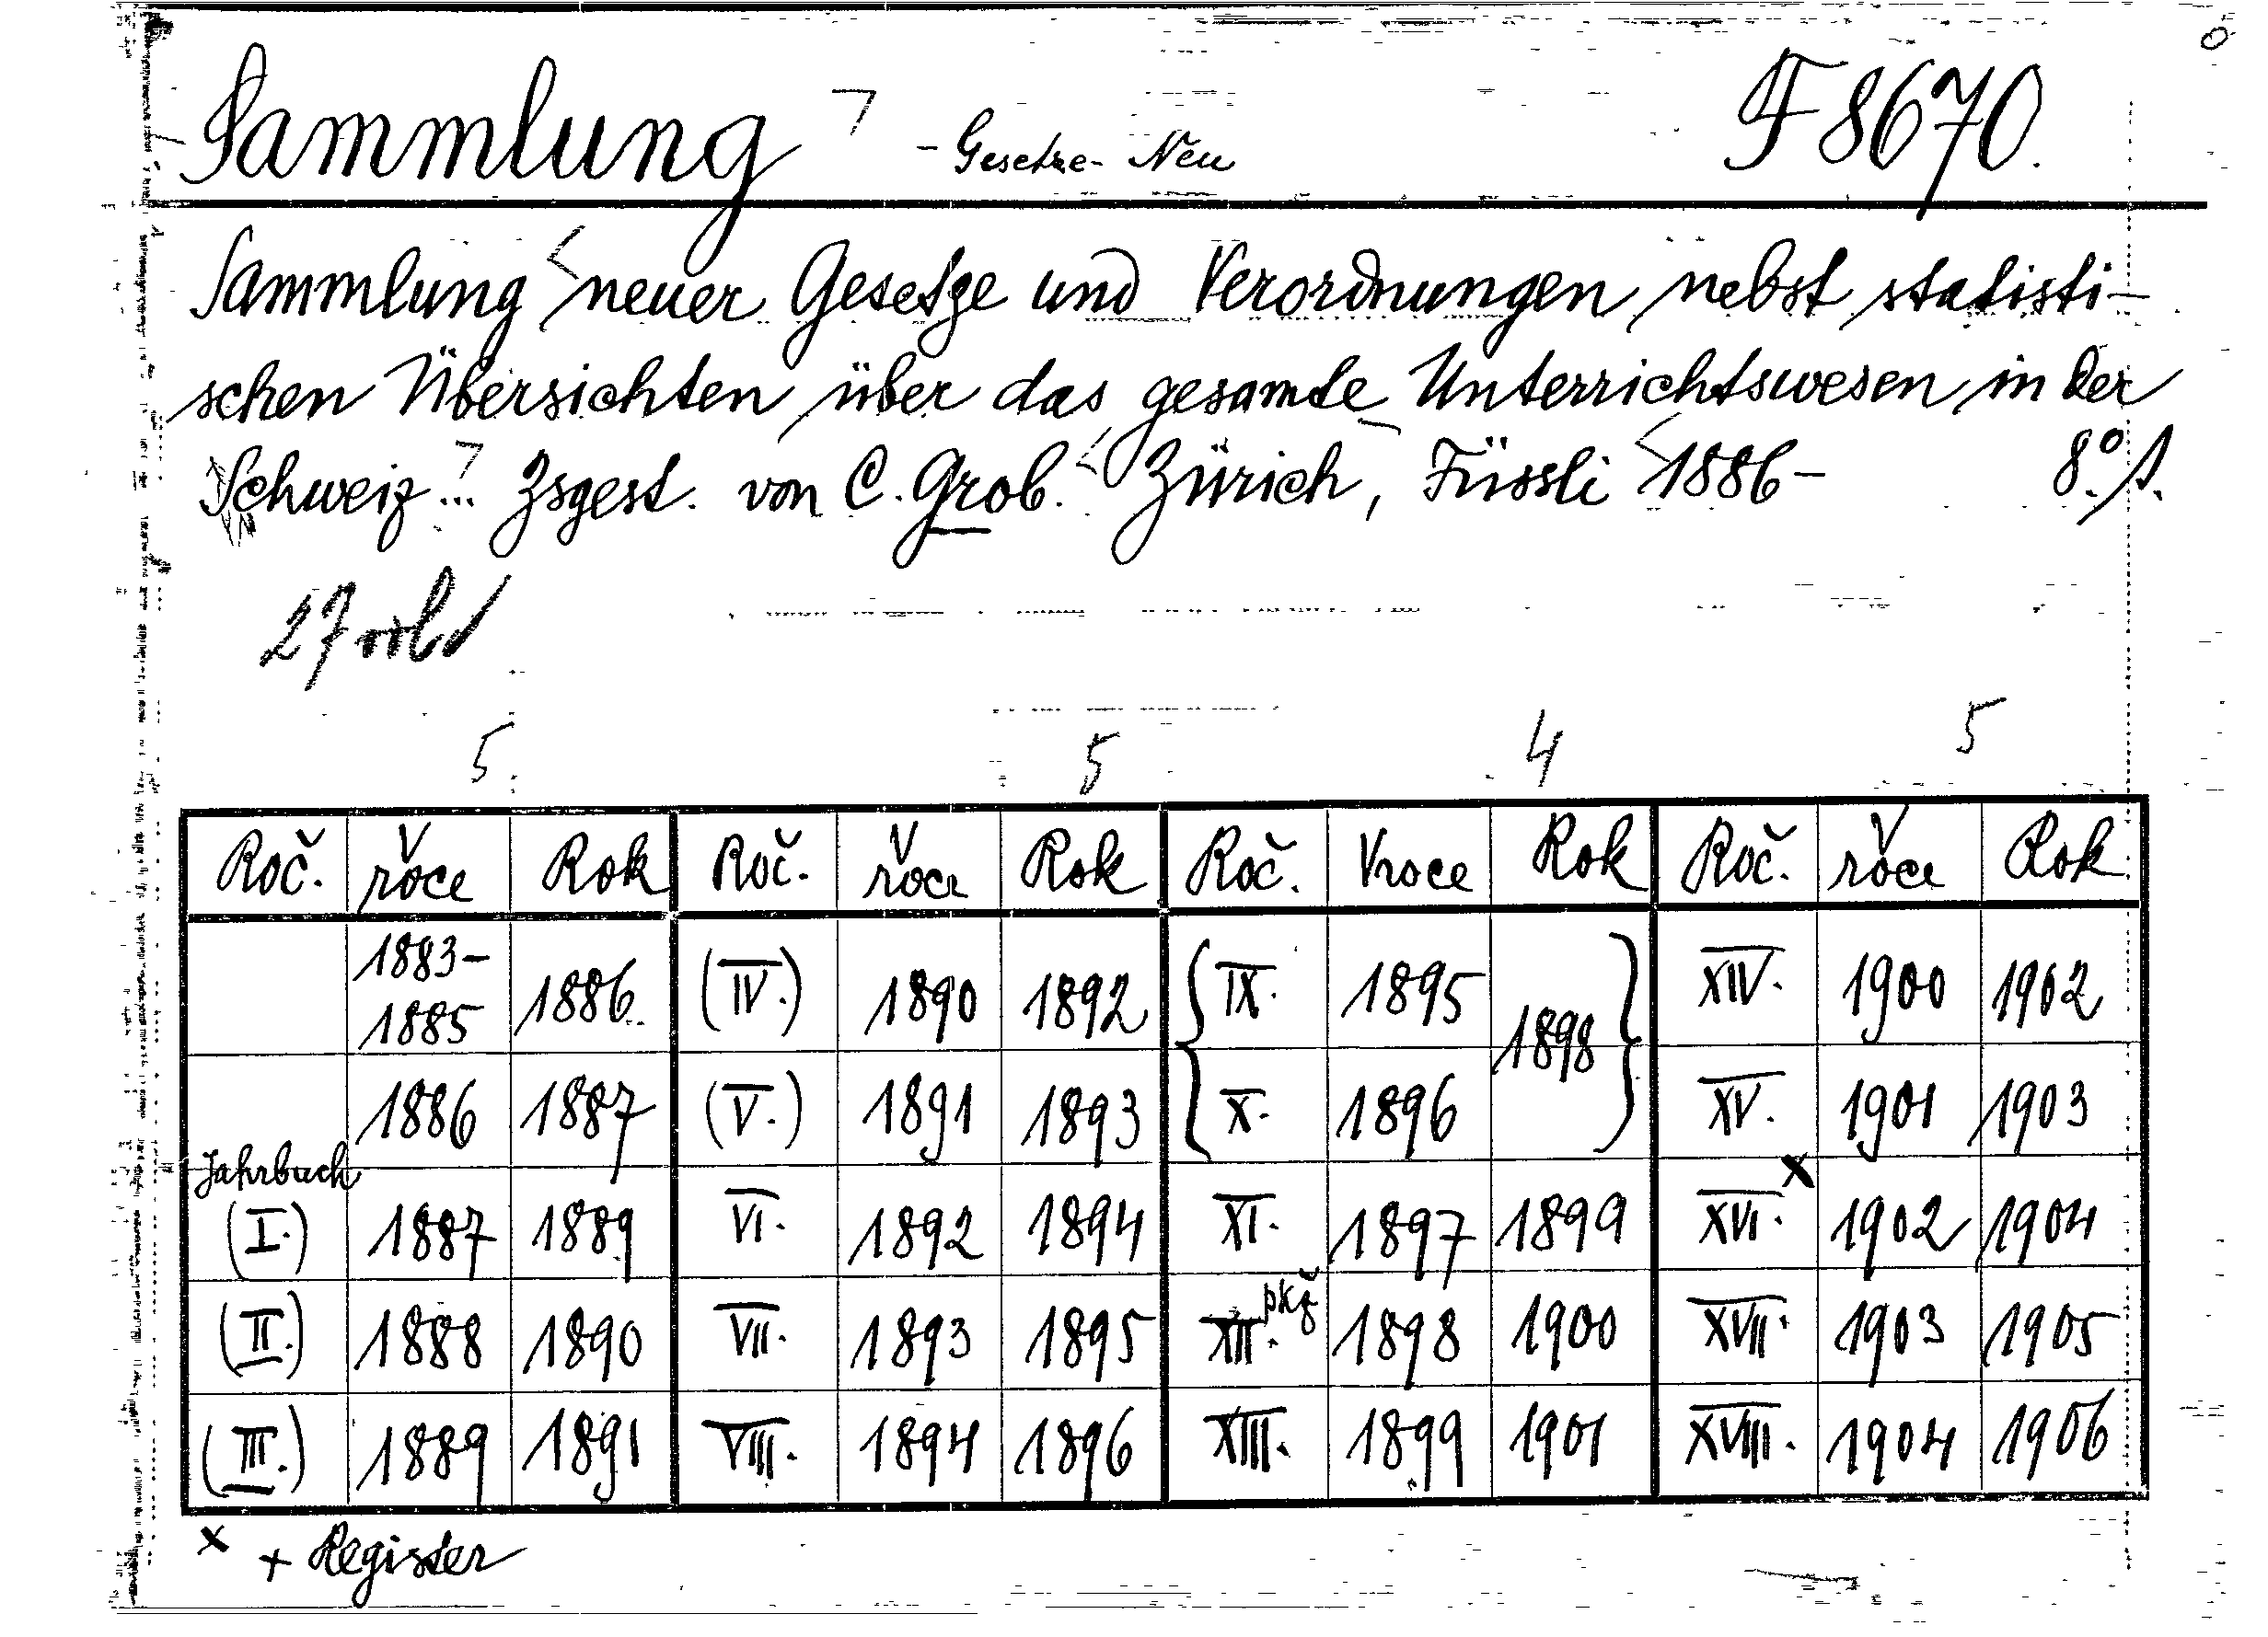 Sammlung - Gesetze - Neu F 8670.
Sammlung neuer Gesetze und Verordnungen nebst statisti-
schen Übersichten über das gesamte Unterrichtswesen in der
Schweiz ... Zsgest. von C. Grob. Zürich, Füssli 1886- 8°.
27
5 5 4 5
Roč. V roce Rok Roč. V roce Rok Roč. V roce Rok Roč. V roce Rok
1883-1885 1886 (IV.) 1890 1892 IX. 1895 1898 XIV. 1900 1902
1886 1887 (V.) 1891 1893 X. 1896 XV. 1901 1903
Jahrbuch (I.) 1887 1889 VI. 1892 1894 XI. 1897 1899 XVI. x 1902 1904
(II.) 1888 1890 VII. 1893 1895 XII. 1898 1900 XVII. 1903 1905
(III.) 1889 1891 VIII. 1894 1896 XIII. 1899 1901 XVIII. 1904 1906
x + Register